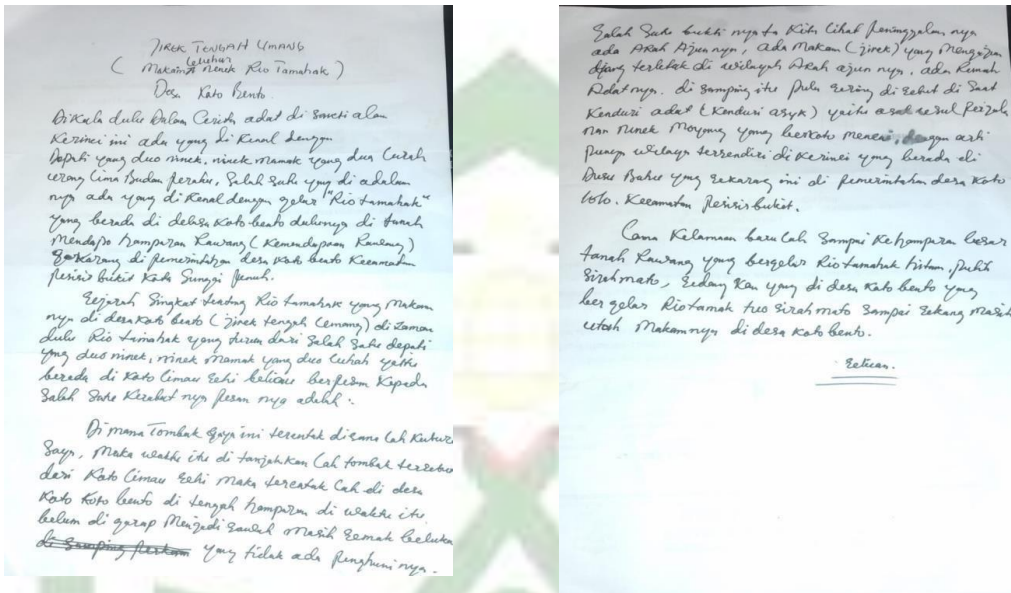 JIREK TENGAH UMANG
leluhur
( Makamnya Ninek Rio Tamahak )
Desa Koto Bento.
Dikala dulu Dalam Cerita adat di sakti alam
Kerinci ini ada yang di Kenal dengan
Depati yang duo ninek, ninek mamak yang dua Lurah
orang Lima Budan peratus, Salah satu yang di adalam
nya ada yang di Kenal dengan gelar "Rio tamahak"
yang berada di debsa Koto bento dulunya di tanah
Mendapo hamparan Rawang (Kemendapoan Rawang)
Sekarang di pemerintahan desa Koto bento Kecamatan
pesisir bukit Kota Sungai penuh.
Sejarah Singkat tentang Rio tamahak yang makam
nya di desa Koto bento (jirek tengah Umang) di zaman
dulu Rio tamahak yang turun dari Salah satu depati
yang duo ninek, ninek mamak yang duo Luhah yaitu
berada di Koto limau Sehi beliau berpesan Kepada
Salah satu Kerabat nya pesan nya adalah :
Di mana Tombak saya ini tercatak disana lah Kubur
Saya, Maka waktu itu di tanjahkan lah tombak tersebut
dari Koto limau sehi maka tercatak lah di desa
Koto Koto bento di tengah hamparan di waktu itu,
belum di garap Menjadi sawah masih semak belukar
yang tidak ada penghuninya.
Salah Satu bukti nya ta Kita lihat peninggalan nya
ada Arah Ajun nya, ada Makam (jirek) yang
terletak di wilayah Arah ajun nya, ada Rumah
Adat nya. di Samping itu pula Sering di Sebut di Saat
Kenduri adat (Kenduri asyk) yaitu asal usul
nan ninek Moyang yang berkato dengan arti
punya wilaya tersendiri di Kerinci yang berada di
Dusun Baheu yang Sekarang ini di pemerintahan desa Koto
lolo. Kecamatan Pesisir bukit.
Lama Kelamaan baru lah Sampai Kehamparan besar
tanah Rawang yang bergelar Rio tamahak hitam, putih
Sirah mato, Sedang Kan yang di desa Koto bento yang
ber gelar Rio tamak tuo sirah mato Sampai Sekang Masih
utoh Makamnya di desa Koto bento.
Sekian.